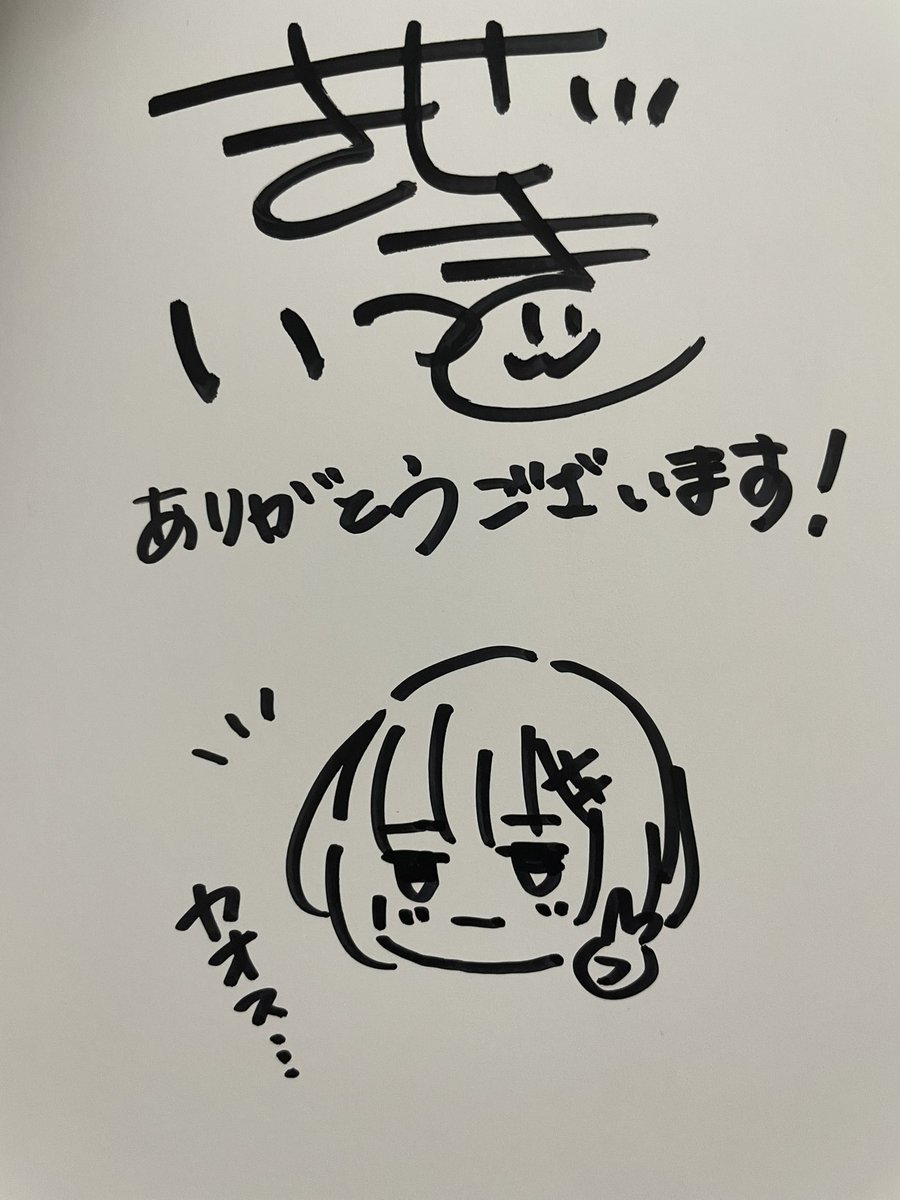 きせ
いつき
ありがとうございます!
カオス…